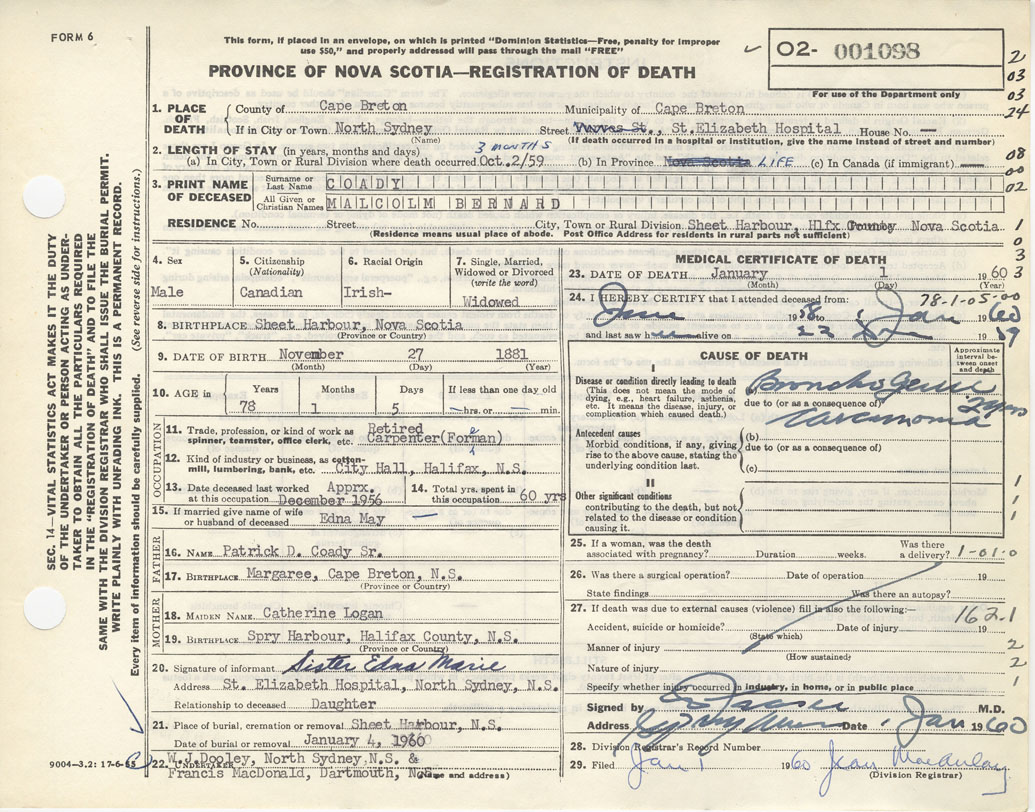 FORM 6
This form, if placed in an envelope, on which is printed "Dominion Statistics—Free, penalty for improper
use $50," and properly addressed will pass through the mail "FREE"
PROVINCE OF NOVA SCOTIA—REGISTRATION OF DEATH
O2- 001098
For use of the Department only
2
03
03
24
1. PLACE OF DEATH
County of Cape Breton Municipality of Cape Breton
If in City or Town North Sydney Street St.Elizabeth Hospital House No. —
(Name) (If death occurred in a hospital or institution, give the name instead of street and number)
2. LENGTH OF STAY (in years, months and days) 3 MONTHS
(a) In City, Town or Rural Division where death occurred Oct.2/59 (b) In Province Nova Scotia LIFE (c) In Canada (if immigrant)
08
00
02
3. PRINT NAME OF DECEASED
Surname or Last Name COADY
All Given or Christian Names MALCOLM BERNARD
RESIDENCE No. Street City, Town or Rural Division Sheet Harbour, Hlfx County Nova Scotia
(Residence means usual place of abode. Post Office Address for residents in rural parts not sufficient)
1
0
3
3
4. Sex
Male
5. Citizenship
(Nationality)
Canadian
6. Racial Origin
Irish-
7. Single, Married,
Widowed or Divorced
(write the word)
Widowed
8. BIRTHPLACE Sheet Harbour, Nova Scotia
(Province or Country)
9. DATE OF BIRTH November 27 1881
(Month) (Day) (Year)
10. AGE in
Years Months Days If less than one day old
78 1 5 hrs. or min.
OCCUPATION
11. Trade, profession or kind of work as Retired
spinner, teamster, office clerk, etc. Carpenter(Forman)
12. Kind of industry or business, as cotton-
mill, lumbering, bank, etc. City Hall, Halifax, N.S.
13. Date deceased last worked Apprx.
at this occupation December 1956
14. Total yrs. spent in
this occupation 60 yrs
15. If married give name of wife
or husband of deceased Edna May —
FATHER
16. NAME Patrick D. Coady Sr.
17. BIRTHPLACE Margaree, Cape Breton, N.S.
(Province or Country)
MOTHER
18. MAIDEN NAME Catherine Logan
19. BIRTHPLACE Spry Harbour, Halifax County, N.S.
(Province or Country)
20. Signature of informant Sister Edna Marie
Address St. Elizabeth Hospital, North Sydney, N.S.
Relationship to deceased Daughter
21. Place of burial, cremation or removal Sheet Harbour, N.S.
Date of burial or removal January 4, 1960
22. UNDERTAKER W.J.Dooley, North Sydney N.S. &
Francis MacDonald, Dartmouth, N.S.
(Name and address)
9004—3.2: 17-6-55
MEDICAL CERTIFICATE OF DEATH
23. DATE OF DEATH January 1 1960
(Month) (Day) (Year)
24. I HEREBY CERTIFY that I attended deceased from: 78-1-05-00
June 1958 to Jan 1960
and last saw h alive on 19
CAUSE OF DEATH
Approximate
interval be-
tween onset
and death
I
Disease or condition directly leading to death
(This does not mean the mode of
dying, e.g., heart failure, asthenia,
etc. It means the disease, injury, or
complication which caused death.)
Bronchogenic
due to (or as a consequence of)
Carcinoma
2 yrs
Antecedent causes
Morbid conditions, if any, giving
rise to the above cause, stating the
underlying condition last.
(b)
due to (or as a consequence of)
(c)
II
Other significant conditions
contributing to the death, but not
related to the disease or condition
causing it.
1
1
1
25. If a woman, was the death
associated with pregnancy? Duration weeks. Was there
a delivery? 1-01-0
26. Was there a surgical operation? Date of operation 19
State findings Was there an autopsy?
27. If death was due to external causes (violence) fill in also the following:—
162.1
Accident, suicide or homicide? Date of injury 19
(State which)
Manner of injury 2
(How sustained)
Nature of injury 2
Specify whether injury occurred in industry, in home, or in public place 1
Signed by M.D.
Address Date 1 Jan 1960
28. Division Registrar's Record Number
29. Filed Jan 1 1960 Jean
(Division Registrar)
SEC. 14—VITAL STATISTICS ACT MAKES IT THE DUTY
OF THE UNDERTAKER OR PERSON ACTING AS UNDER-
TAKER TO OBTAIN ALL THE PARTICULARS REQUIRED
IN THE "REGISTRATION OF DEATH" AND TO FILE THE
SAME WITH THE DIVISION REGISTRAR WHO SHALL ISSUE THE BURIAL PERMIT.
WRITE PLAINLY WITH UNFADING INK. THIS IS A PERMANENT RECORD.
Every item of information should be carefully supplied. (See reverse side for instructions.)